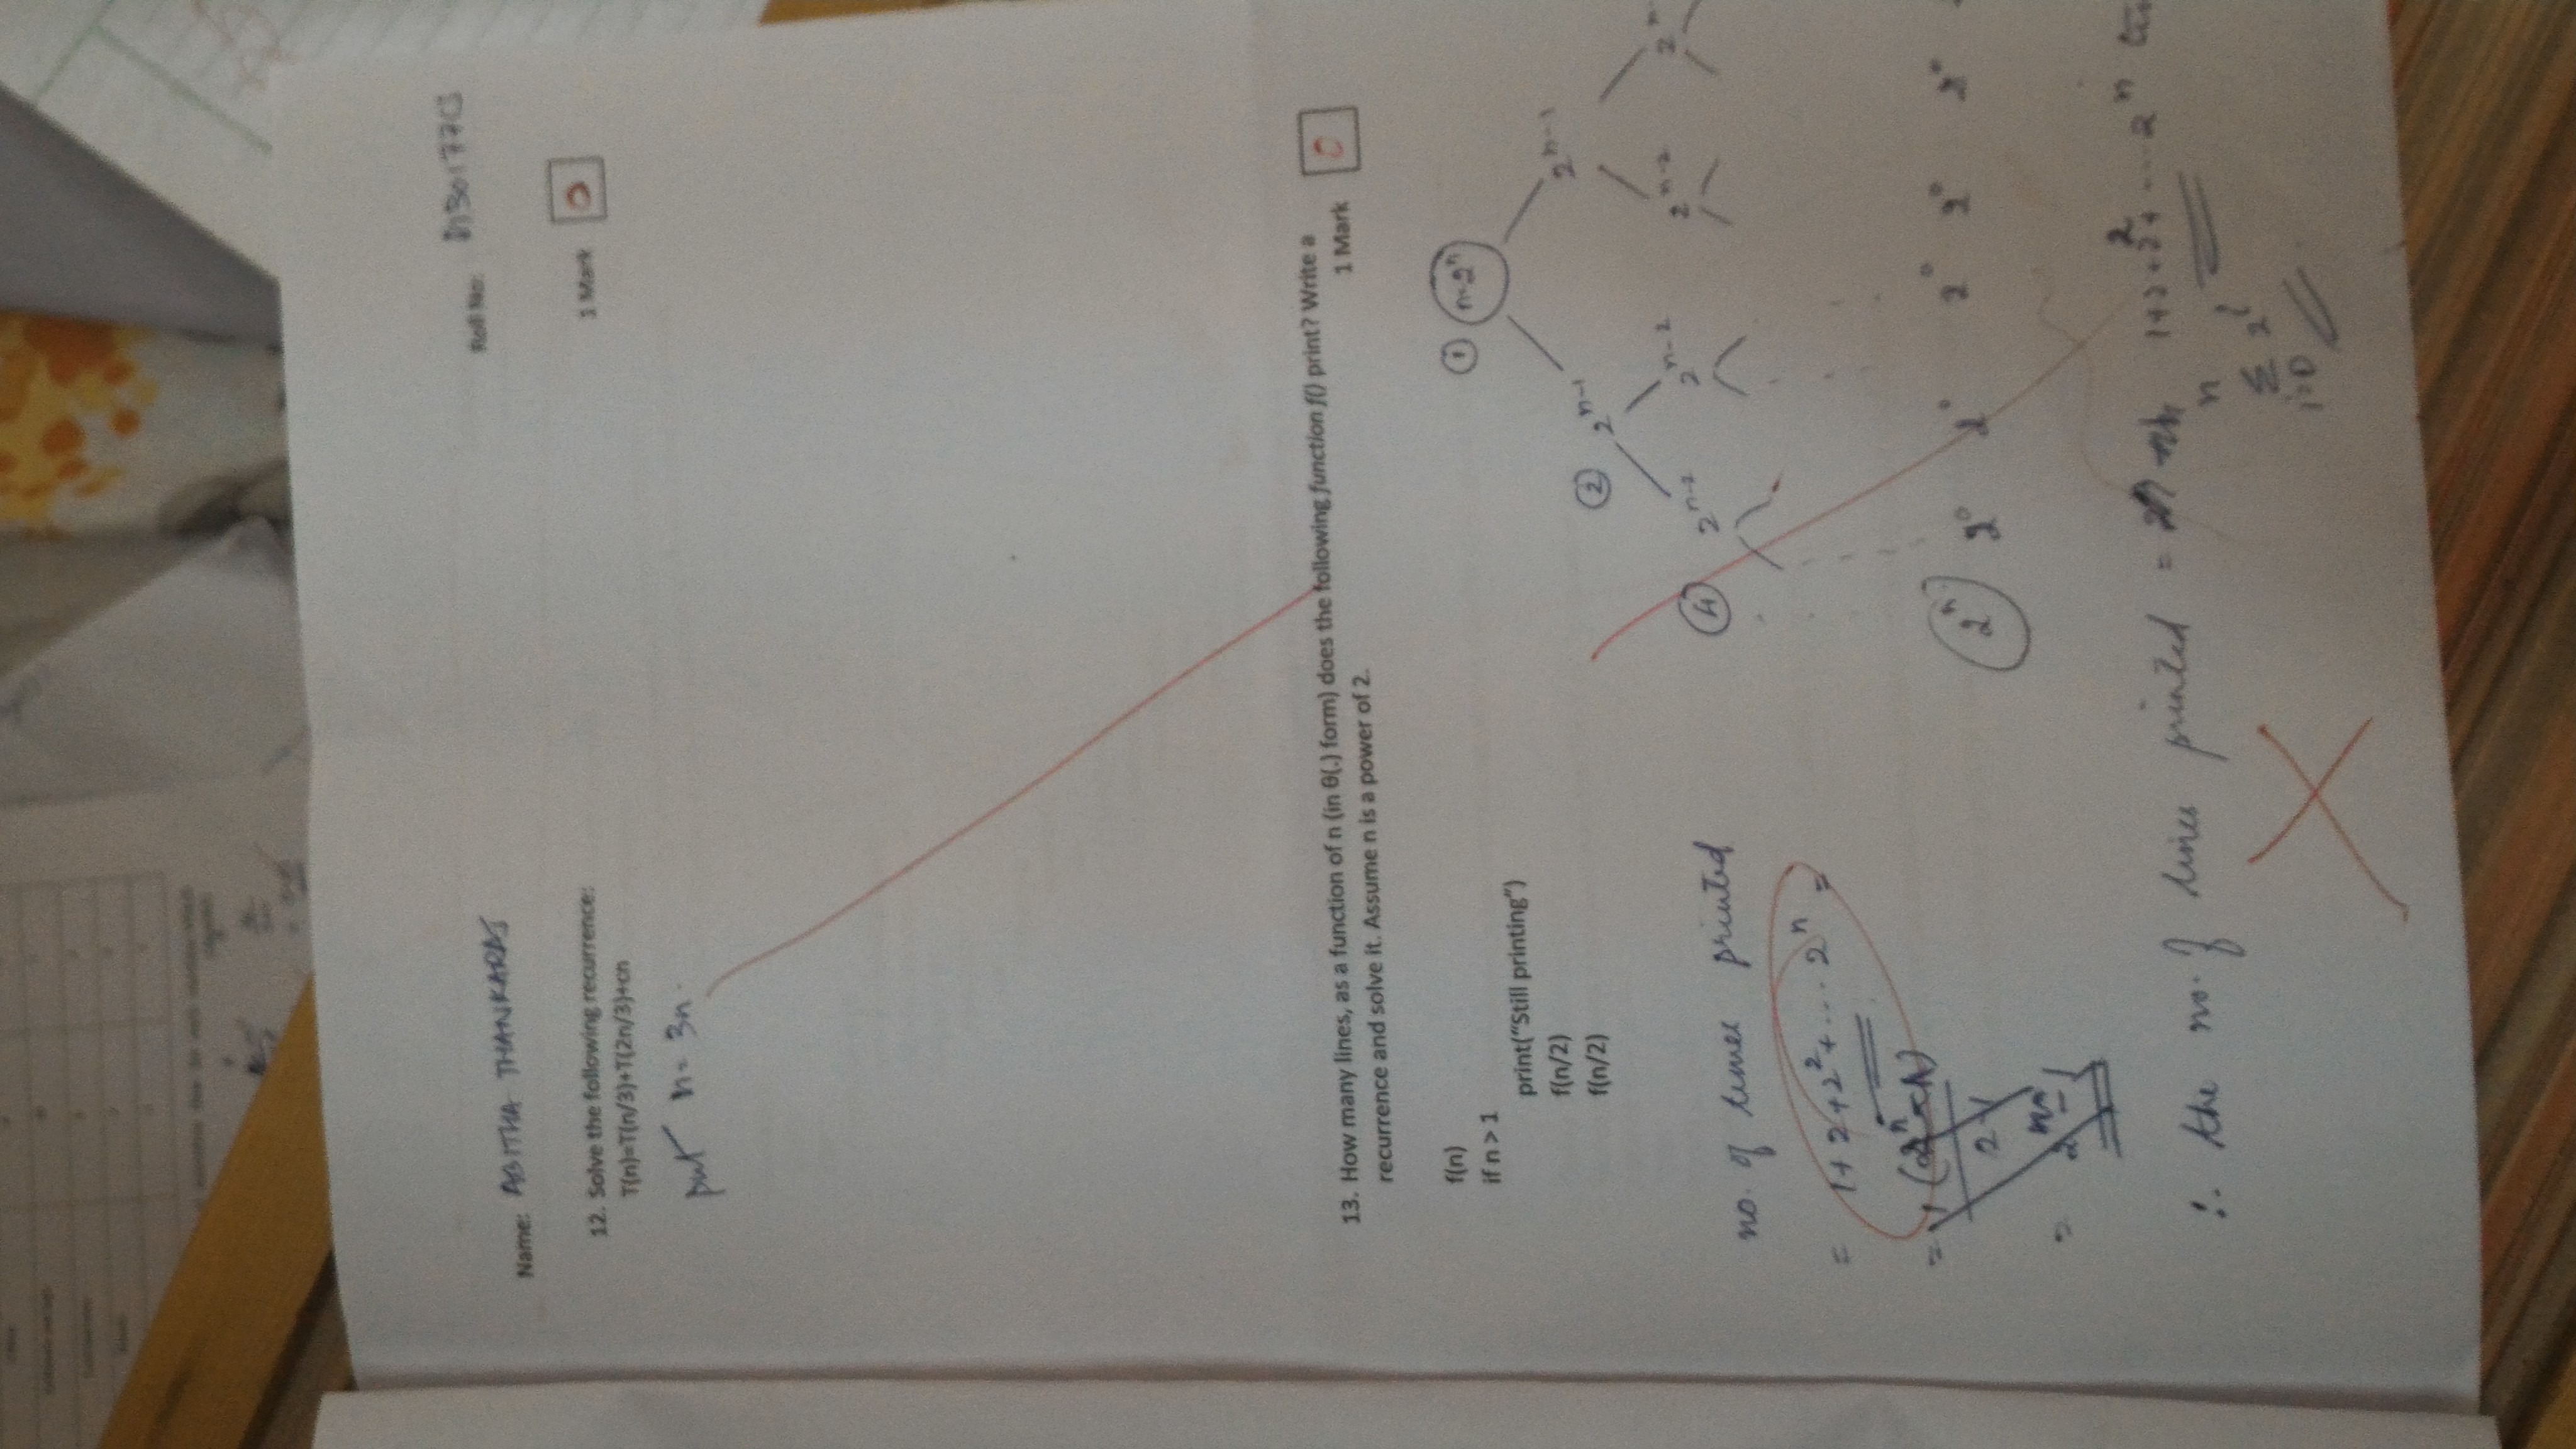 Name: ABITHA THANKARAJ Roll No:
12. Solve the following recurrence: 1 Mark 0
T(n)=T(n/3)+T(2n/3)+cn
put n = 3n.
13. How many lines, as a function of n (in θ(.) form) does the following function f() print? Write a
recurrence and solve it. Assume n is a power of 2. 1 Mark 0
f(n)
if n > 1
print("Still printing")
f(n/2)
f(n/2)
① n=2ⁿ
② 2ⁿ⁻¹ 2ⁿ⁻¹
④ 2ⁿ⁻² 2ⁿ⁻² 2ⁿ⁻²
2ⁿ 2⁰ 2⁰ 2⁰ 2⁰ 2⁰
no. of lines printed
= 1+2+2²+.... 2ⁿ =
∴ the no. of lines printed = 1+2+2²+....2ⁿ
n
Σ 2ⁱ
i=0